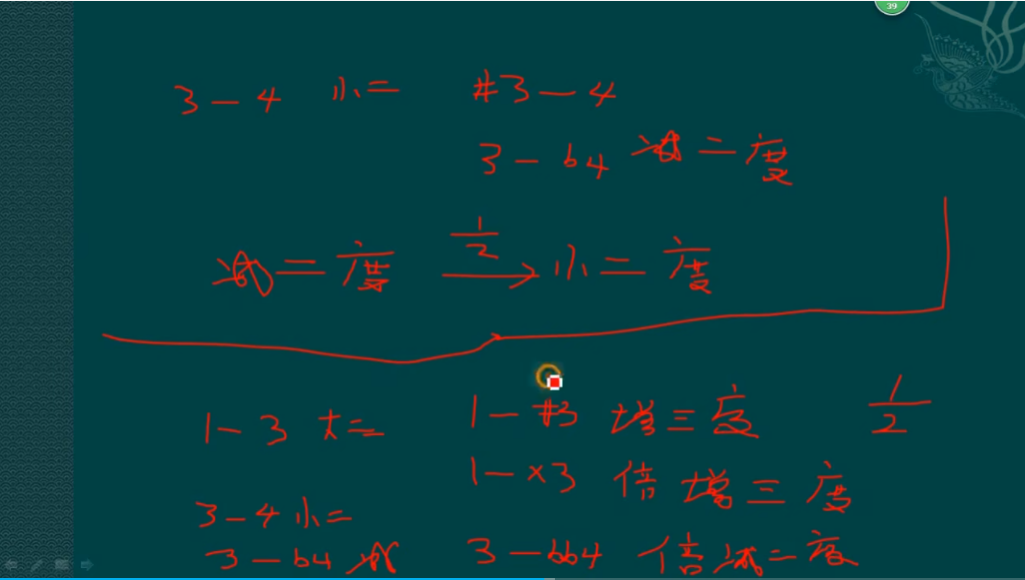 39
3-4 小二 #3-4
3-b4 减二度
减二度 1/2 → 小二度
1-3 大三 1-#3 增三度 1/2
1-×3 倍增三度
3-4 小二
3-b4 减 3-bb4 倍减二度